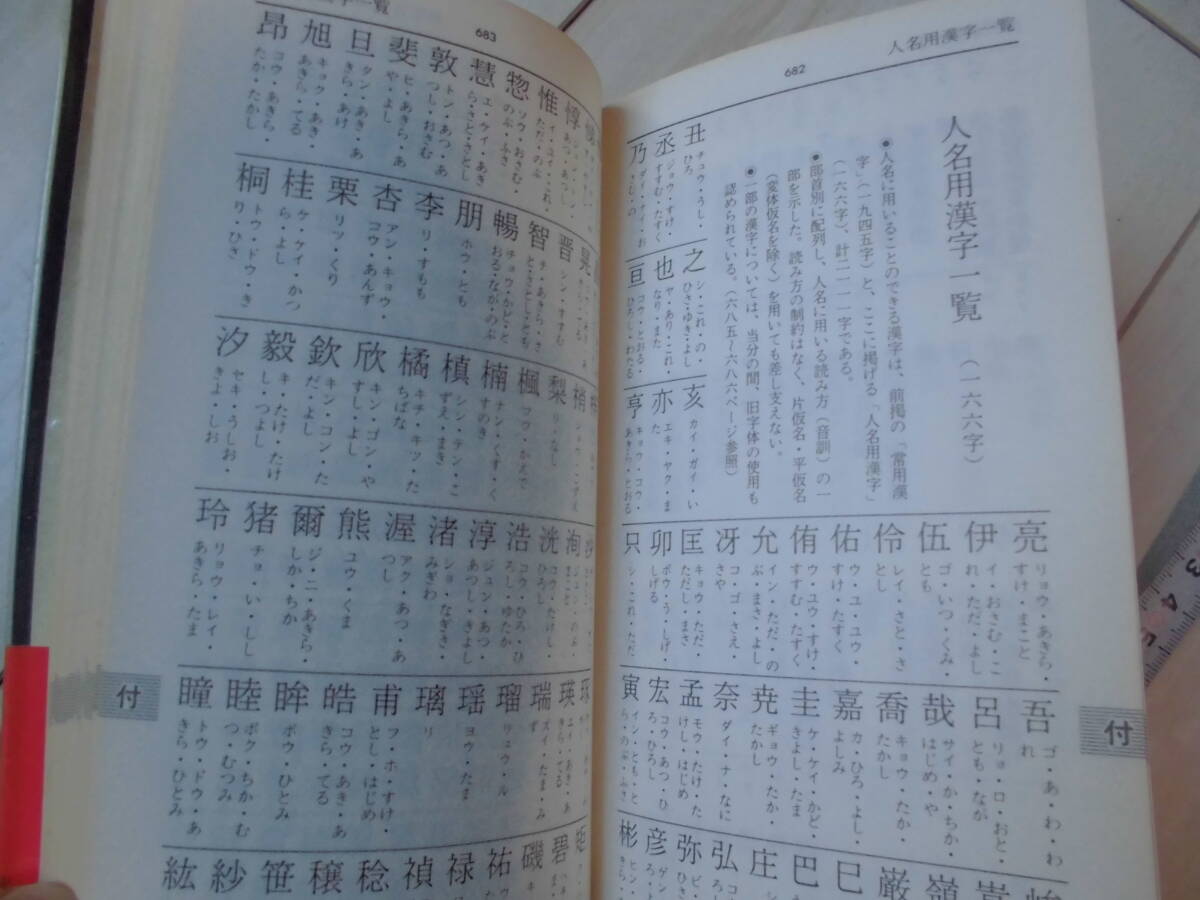 人名用漢字一覧
682
人名用漢字一覧 (一六六字)
●人名に用いることのできる漢字は、前掲の「常用漢
字」(一九四五字)と、ここに掲げる「人名用漢字」
(一六六字)、計二一一一字である。
●部首別に配列し、人名に用いる読み方(音訓)の一
部を示した。読み方の制約はなく、片仮名・平仮名
(変体仮名を除く)を用いても差し支えない。
●一部の漢字については、当分の間、旧字体の使用も
認められている。(六八五〜六八六ページ参照)
丑 チュウ・うし・ひろ
丞 ジョウ・すけ・すすむ・たすく
乃
之 シ・これ・の・ひさ・ゆき・よし
也 ヤ・あり・これ・なり・また
亘 コウ・とおる・ひろし・わたる
亥 カイ・ガイ・い
亦 エキ・ヤク・また
亨 キョウ・コウ・あきら・とおる
亮 リョウ・あきら・すけ・まこと
伊 イ・おさむ・これ・ただ・よし
伍 ゴ・いつ・くみ・とも
伶 レイ・さと・さとし
佑 ウ・ユ・ユウ・すけ・たすく
侑 ウ・ユウ・すけ・すすむ・たすく
允 イン・ただ・のぶ・まさ・よし
冴 コ・ゴ・さえ・さや
匡 キョウ・ただ・ただし・まさ
卯 ボウ・う・しげ・しげる
只 シ・これ・ただ
吾 ゴ・あ・わ・われ
呂 リョ・ロ・おと・とも・なが
哉 サイ・か・ちか・はじめ・や
喬 キョウ・たか・たかし
嘉 カ・ひろ・よし・よしみ
圭 ケ・ケイ・かど・きよし・たま
尭 ギョウ・たか・たかし
奈 ダイ・ナ・なに
孟 モウ・たけ・たけし・はじめ
宏 コウ・あつ・ひろ・ひろし
寅 イン・とも・とら・のぶ・ふさ
峻
嵩
嶺
巌
巳
巴
庄
弘
弥
彦
彬
付
683
惇
惟 イ・ユイ・これ・ただ・のぶ
惣 ソウ・おさむ・のぶ・ふさ
慧 エ・ケイ・あきら・さと・さとし
敦 トン・あつ・あつし・おさむ
斐 ヒ・あきら・あや・よし
旦 タン・あき・あきら・あけ
旭 キョク・あき・あきら・てる
昂 コウ・あきら・たか・たかし
晃
晋 シン・すすむ
智 チ・あきら・さと・さとし・とも
暢 チョウ・かど・とおる・なが・のぶ
朋 ホウ・とも
李 リ・すもも
杏 アン・キョウ・コウ・あんず
栗 リツ・くり
桂 ケ・ケイ・かつら・よし
桐 トウ・ドウ・きり・ひさ
梢
梨 リ・なし
楓 フウ・かえで
楠 ナン・くす・くすのき
槙 シン・テン・こずえ・まき
橘 キチ・キツ・たちばな
欣 キン・ゴン・やすし・よし
欽 キン・コン・ただ・よし
毅 キ・たけ・たけし・つよし
汐 セキ・うしお・きよ・しお
洵
洸 コウ・たけし・ひろし
浩 コウ・ひろ・ひろし・ゆたか
淳 ジュン・あつ・あつし・きよし
渚 ショ・なぎさ・みぎわ
渥 アク・あつ・あつし
熊 ユウ・くま
爾 ジ・ニ・あきら・しか・ちか
猪 チョ・い・しし
玲 リョウ・レイ・あきら・たま
琢
瑛
瑞 ズイ・たま・みず
瑠 リュウ・ル
瑶 ヨウ・たま
璃 リ
甫 フ・ホ・すけ・とし・はじめ
皓 コウ・あき・あきら・てる
眸 ボウ・ひとみ
睦 ボク・ちか・むつ・むつみ
瞳 トウ・ドウ・あきら・ひとみ
矩
碧
磯
祐
禄
禎
稔
穣
笹
紗
紘
付